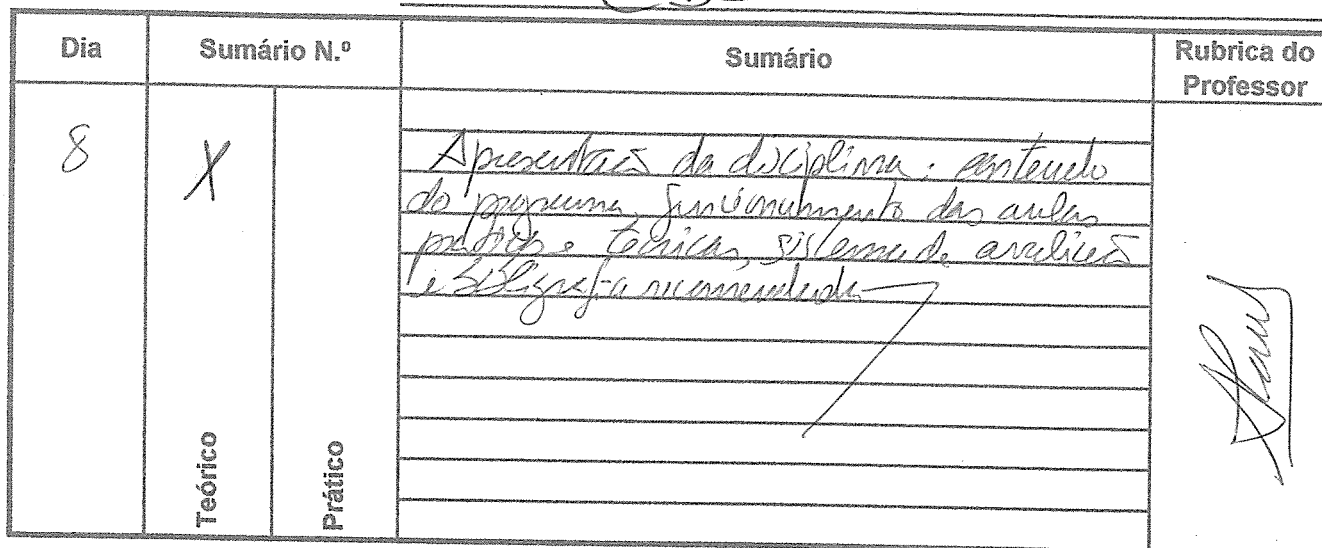 Dia
Sumário N.º
Sumário
Rubrica do
Professor
8
X
Apresentação da disciplina: conteudo
do programa, funcionamento das aulas
praticas e teóricas, sistema de avaliação
e bibliografia recomendada
Teórico
Prático